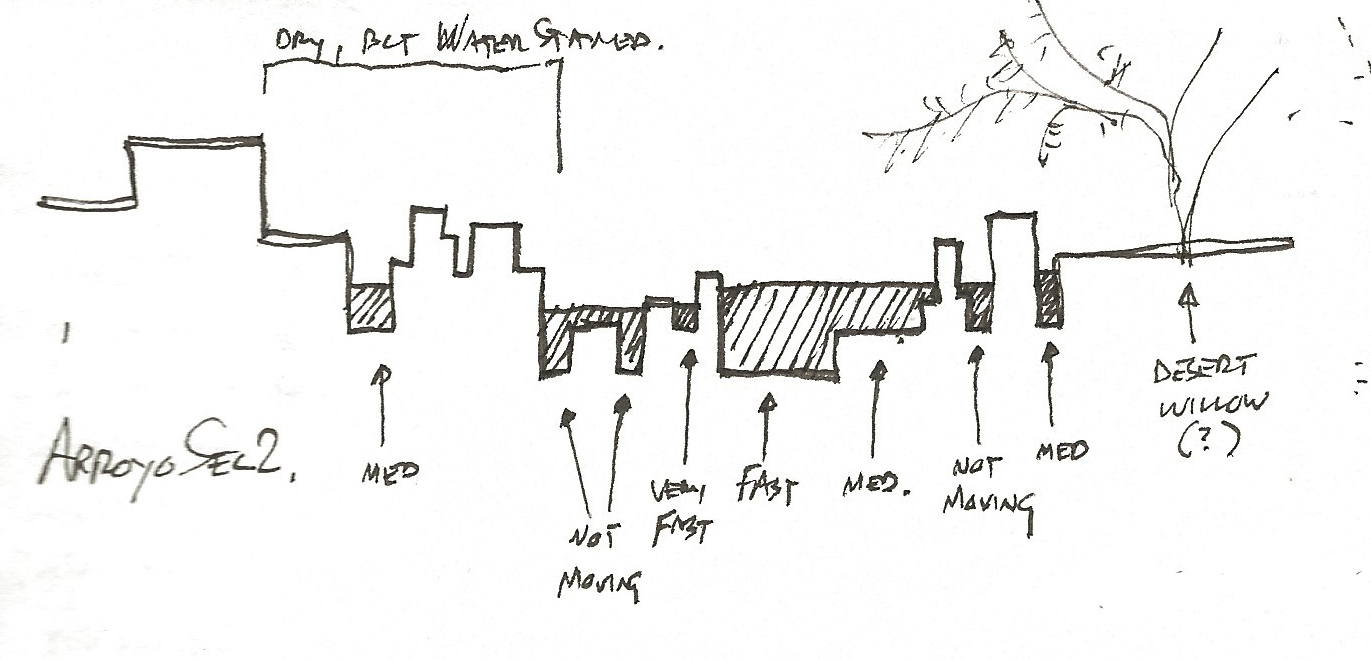 DRY, BUT WATER STAINED.
ARROYO SEC 2.
MED
NOT
MOVING
VERY
FAST
FAST
MED.
NOT
MOVING
MED
DESERT
WILLOW
(?)